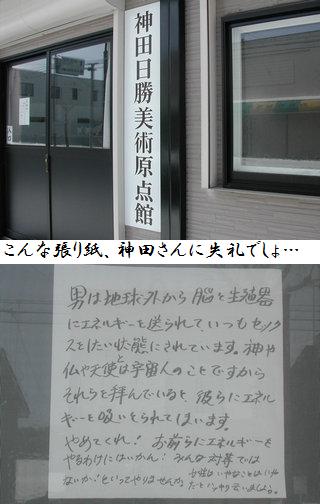 神田日勝美術原点館
こんな張り紙、神田さんに失礼でしょ…
男は地球外から脳と生殖器
にエネルギーを送られていつもセック
スをしたい状態にされています。神や
仏や天使とは宇宙人のことですから
それらを拝んでいると、彼らにエネル
ギーを吸いとられてしまいます。
やめてくれ! お前らにエネルギーを
やるわけにはいかん! みんな対等では
ないか! といってやりませんか。
女性はいやなことはいや
だとハッキリ言いましょう。